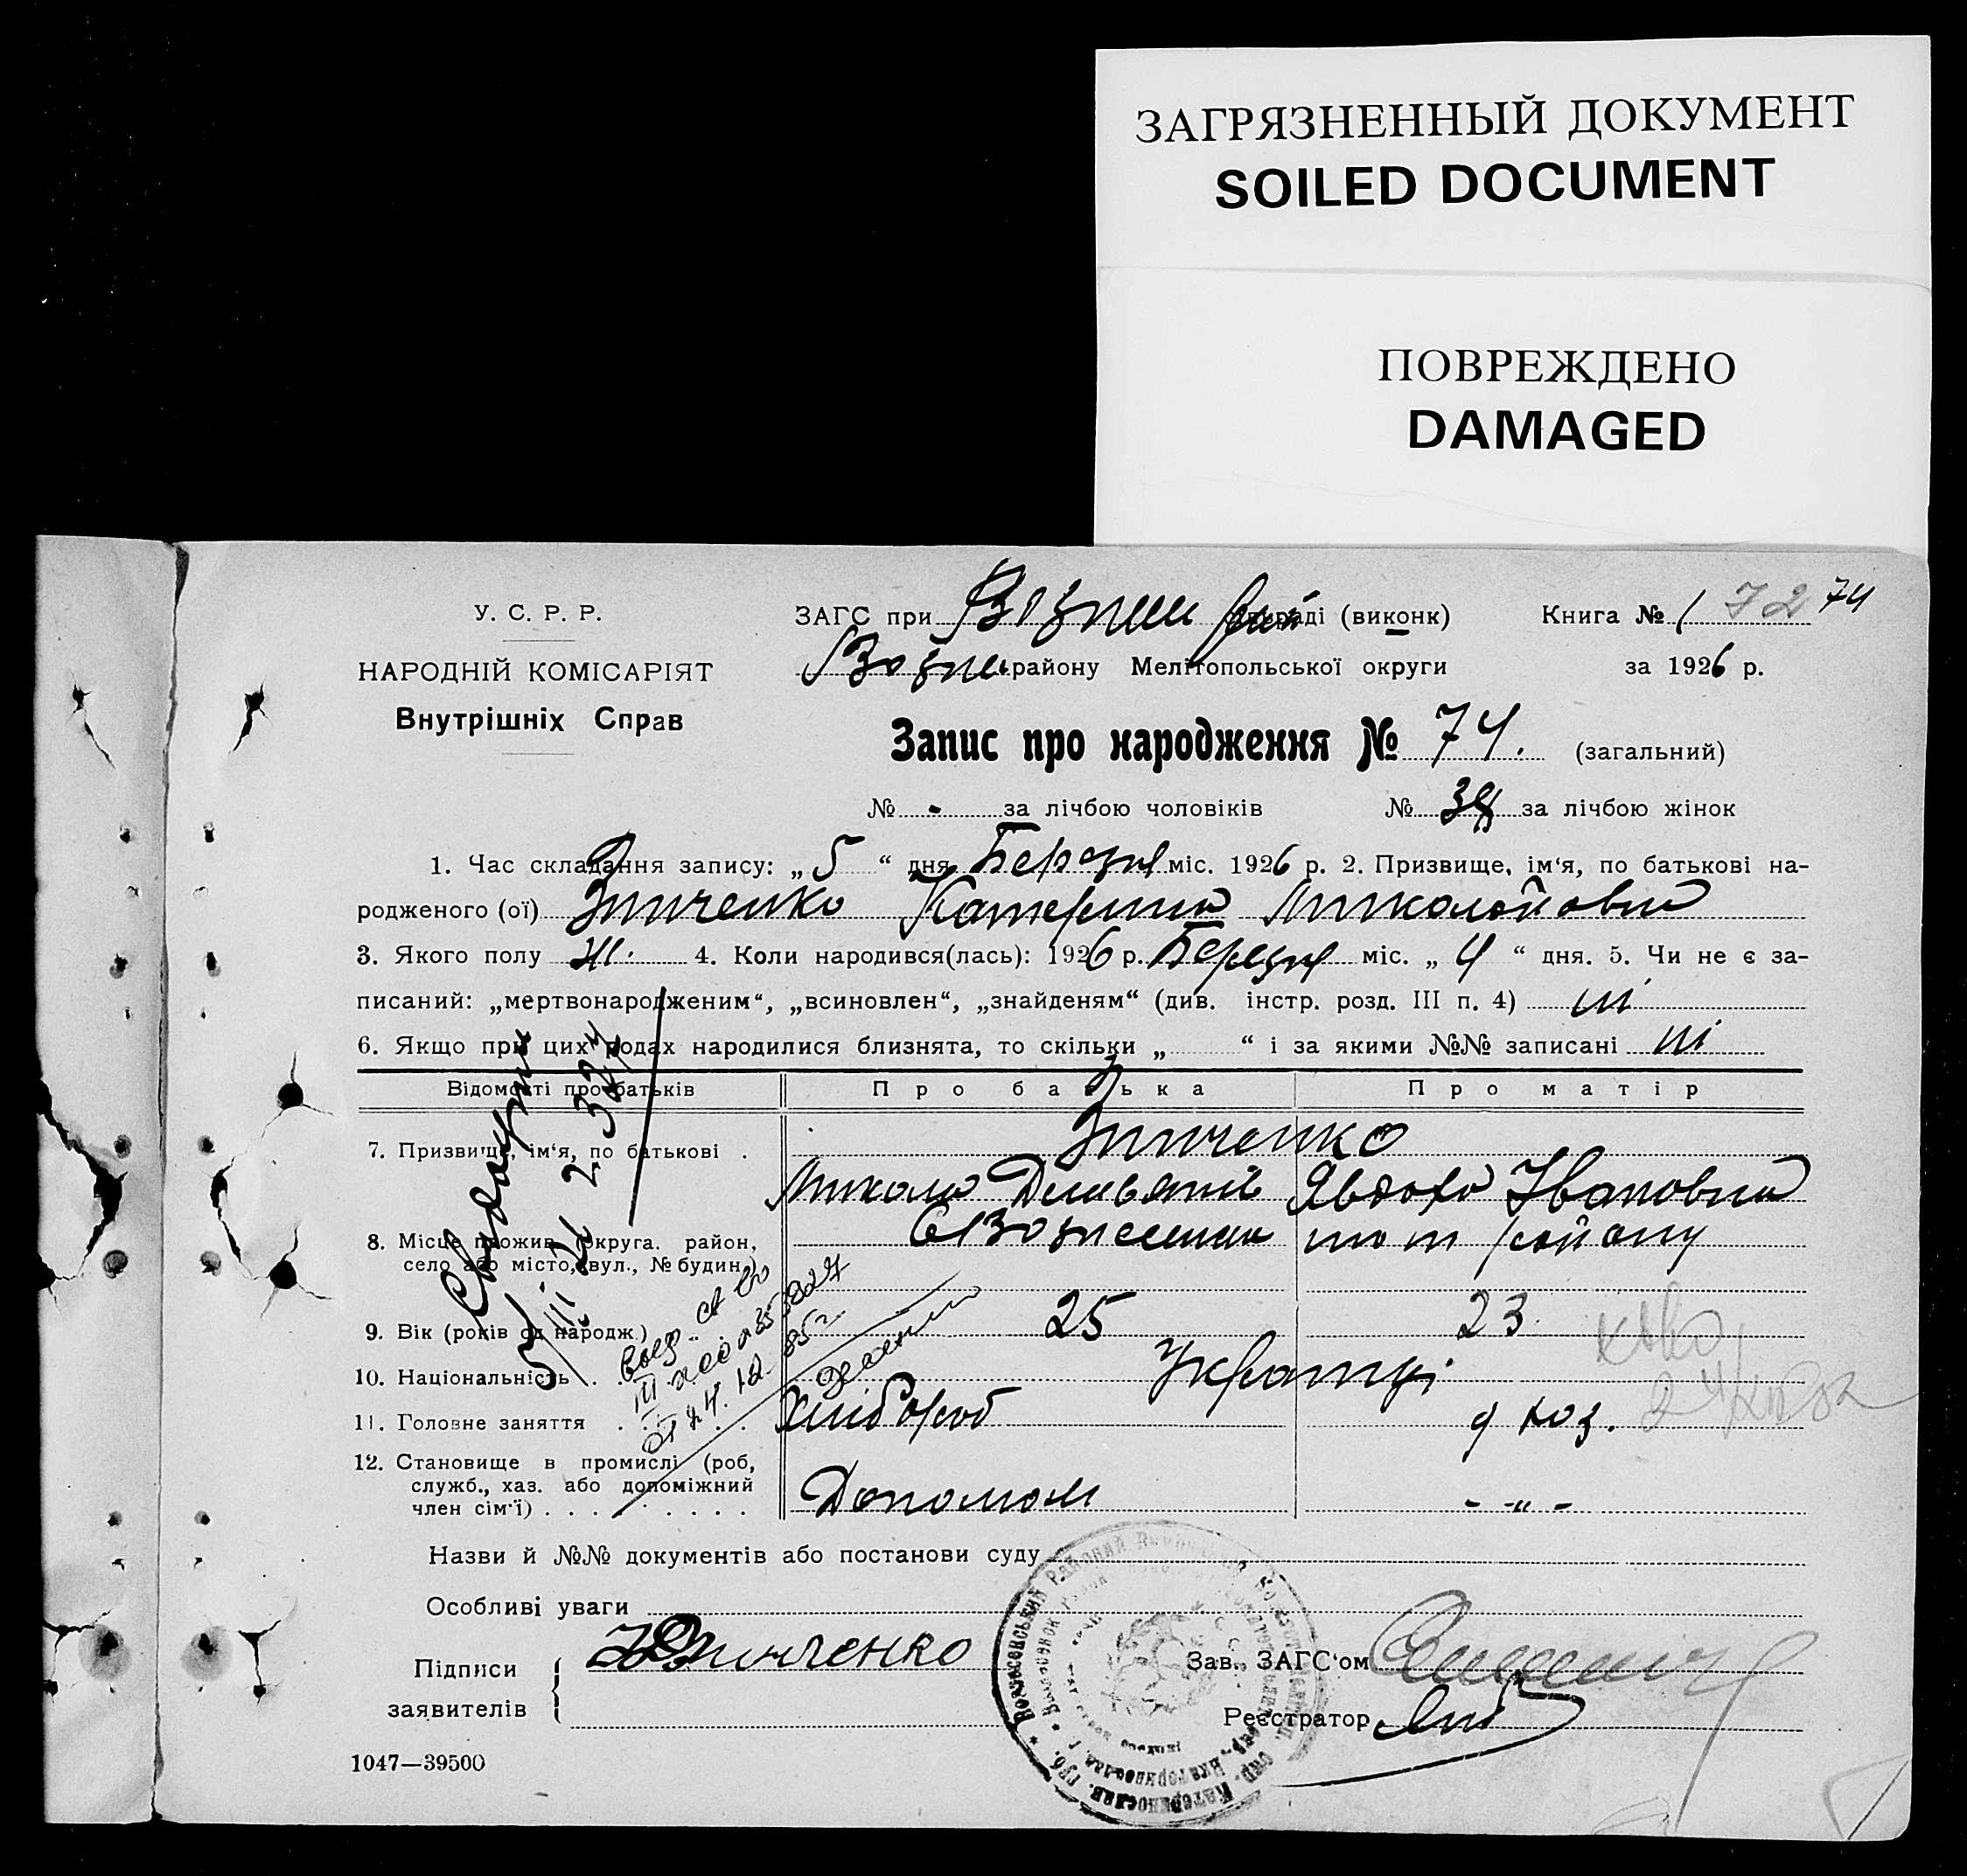 ЗАГРЯЗНЕННЫЙ ДОКУМЕНТ
SOILED DOCUMENT
ПОВРЕЖДЕНО
DAMAGED
У. С. Р. Р.
НАРОДНІЙ КОМІСАРІЯТ
Внутрішніх Справ
ЗАГС при раді (виконк)
району Мелітопольської округи
Книга № 1 72 74
за 1926 р.
Запис про народження № 74. (загальний)
№ - за лічбою чоловіків № за лічбою жінок
1. Час складання запису: „ 5 “ дня Березня міс. 1926 р. 2. Призвище, ім‘я, по батькові на-
родженого (ої) Зинченко Катерина Миколайовна
3. Якого полу ж. 4. Коли народився(лась): 1926 р. Березня міс. „ 4 “ дня. 5. Чи не є за-
писаний: „мертвонародженим“, „всиновлен“, „знайденям“ (див. інстр. розд. III п. 4) ні
6. Якщо при цих родах народилися близнята, то скільки „ “ і за якими №№ записані ні
Відомості про батьків Про батька Про матір
7. Призвище, ім‘я, по батькові . Зинченко
Микола Демьянів Явдоха Ивановна
8. Місце прожив. (округа, район, с Вознесенка того району
село або місто, вул., № будин.)
9. Вік (років од народж.) 25 23
10. Національність . . Українці
11. Головне заняття . . Хлібороб д хоз.
12. Становище в промислі (роб,
служб., хаз. або допоміжний
член сім‘ї) . . . . . . . . Допомож - „ -
Назви й №№ документів або постанови суду
Особливі уваги
Підписи
заявителів
Зинченко
Зав. ЗАГС‘ом
Реєстратор
1047—39500